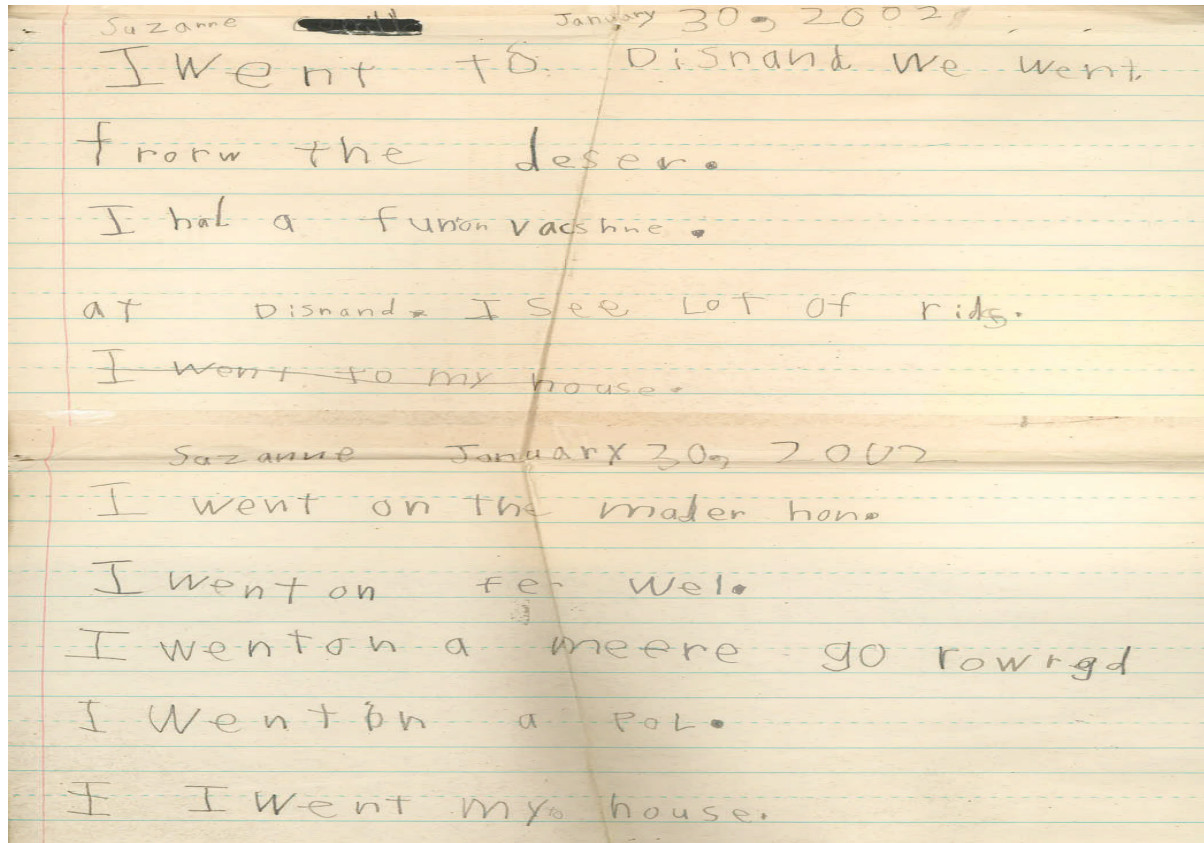 Suzanne January 30, 2002
I Went to Disnand We Went
frorw the deser.
I had a funon vacshne.
at Disnand. I See LoT of rids.
I went to my house.
Suzanne January 30, 2002
I went on the mader hon.
I went on fer wel.
I went on a meere go rowrgd
I Went on a PoL.
I I Went my to house.